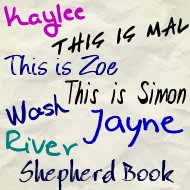 Kaylee
THIS IS MAL
This is Zoe
This is Simon
Wash
Jayne
River
Shepherd Book